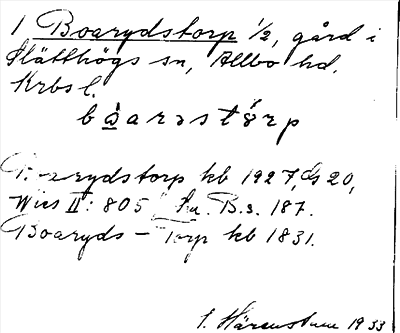 1 Boarydstorp 1/2, gård i
Slätthögs sn, Allbo hd.
Krbs l.
bòarəstórp
Boarydstorp kb 1927, ds 20,
Wies II: 805, B.s. 187.
Boaryds-Torp kb 1831.
1933